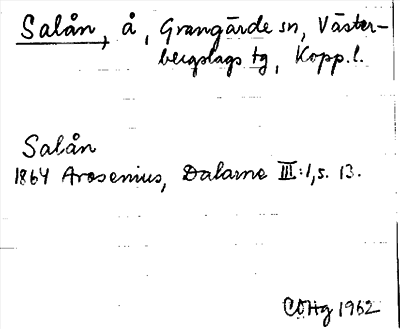 Salån, å, Grangärde sn, Väster-
bergslags tg, Kopp.l.
Salån
1864 Arosenius, Dalarne III:1, s. 13.
COHg 1962